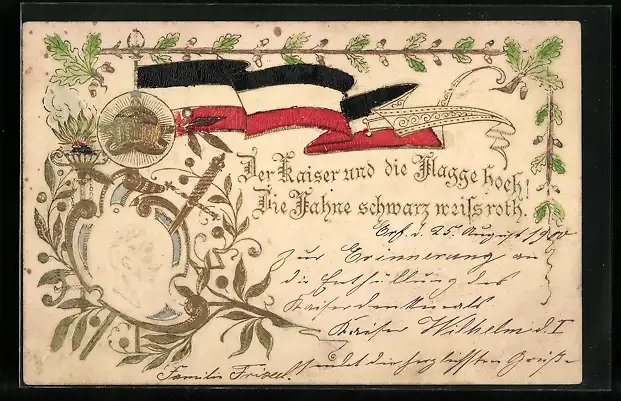 Der Kaiser und die Flagge hoch!
Die Fahne schwarz weiss roth.
d. 25. August 1900
Zur Erinnerung an
die Enthüllung des
Kaiserdenkmals
Kaiser Wilhelm d. I
sendet die herzlichsten Grüße
Familie